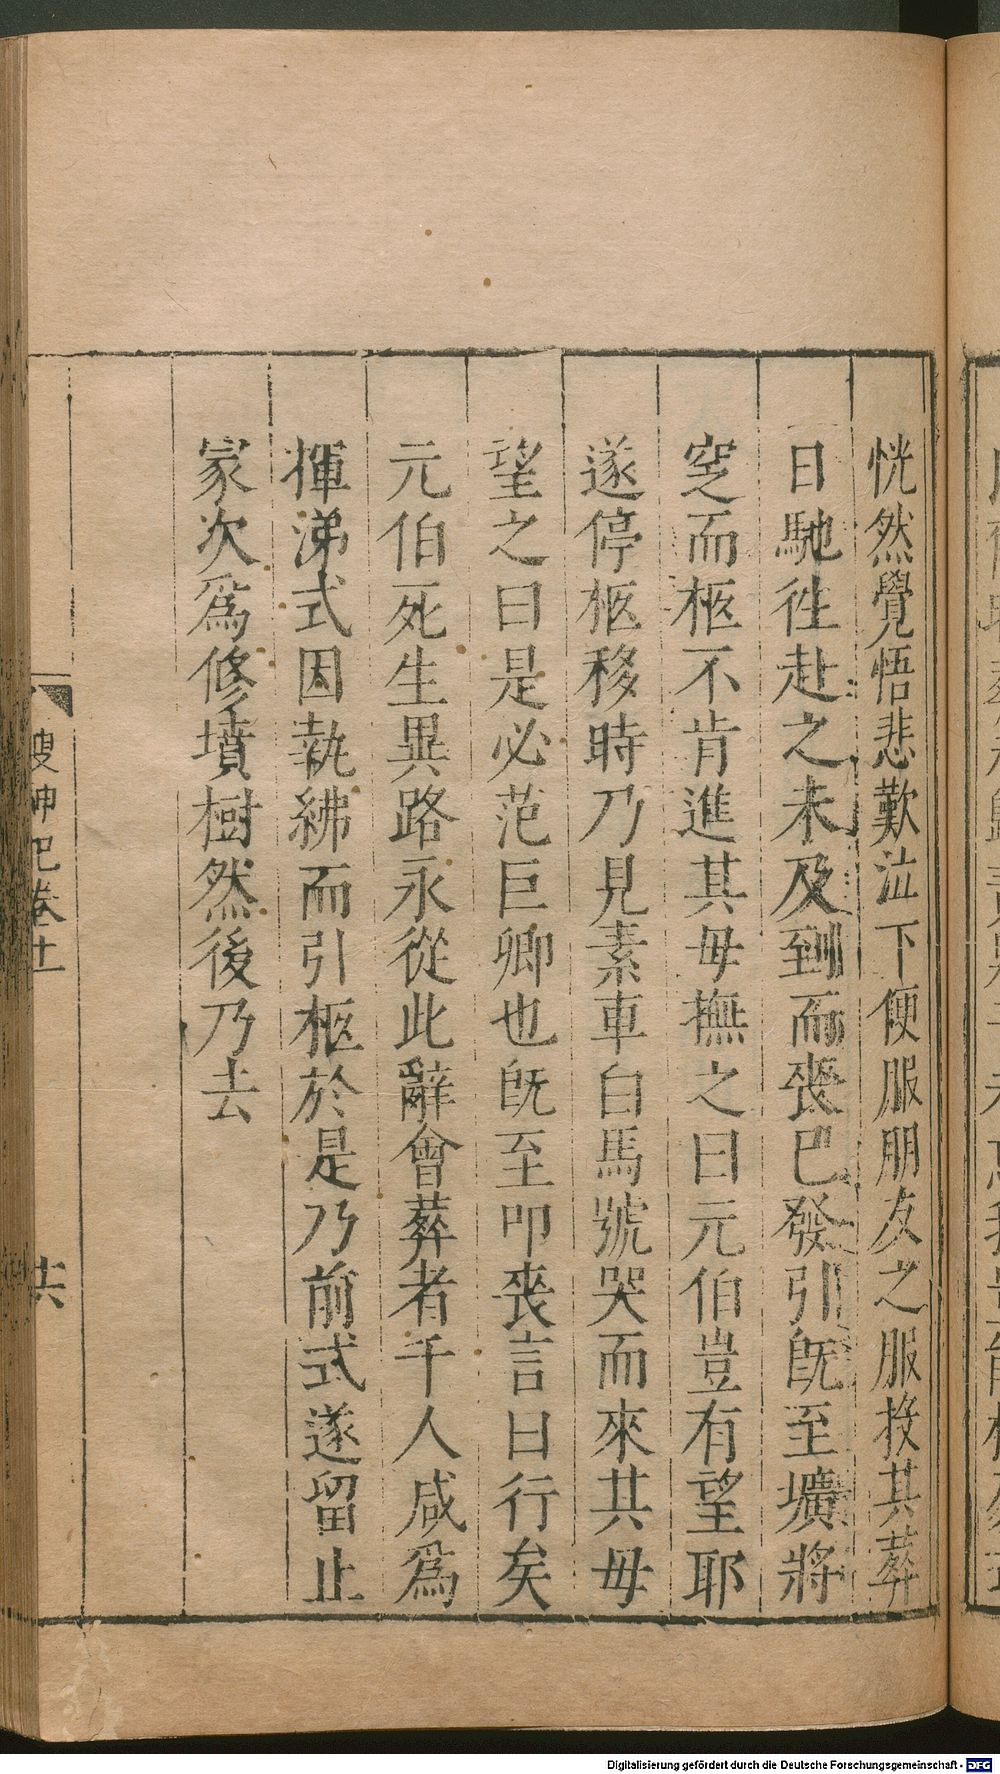 恍然覺悟悲歎泣下便服朋友之服投其葬
日馳往赴之未及到而喪已發引旣至壙將
窆而柩不肯進其母撫之曰元伯豈有望耶
遂停柩移時乃見素車白馬號哭而來其母
望之曰是必范巨卿也旣至叩喪言曰行矣
元伯死生異路永從此辭會葬者千人咸爲
揮涕式因執紼而引柩於是乃前式遂留止
冢次爲修墳樹然後乃去
搜神記卷十一
十六
Digitalisierung gefördert durch die Deutsche Forschungsgemeinschaft - DFG